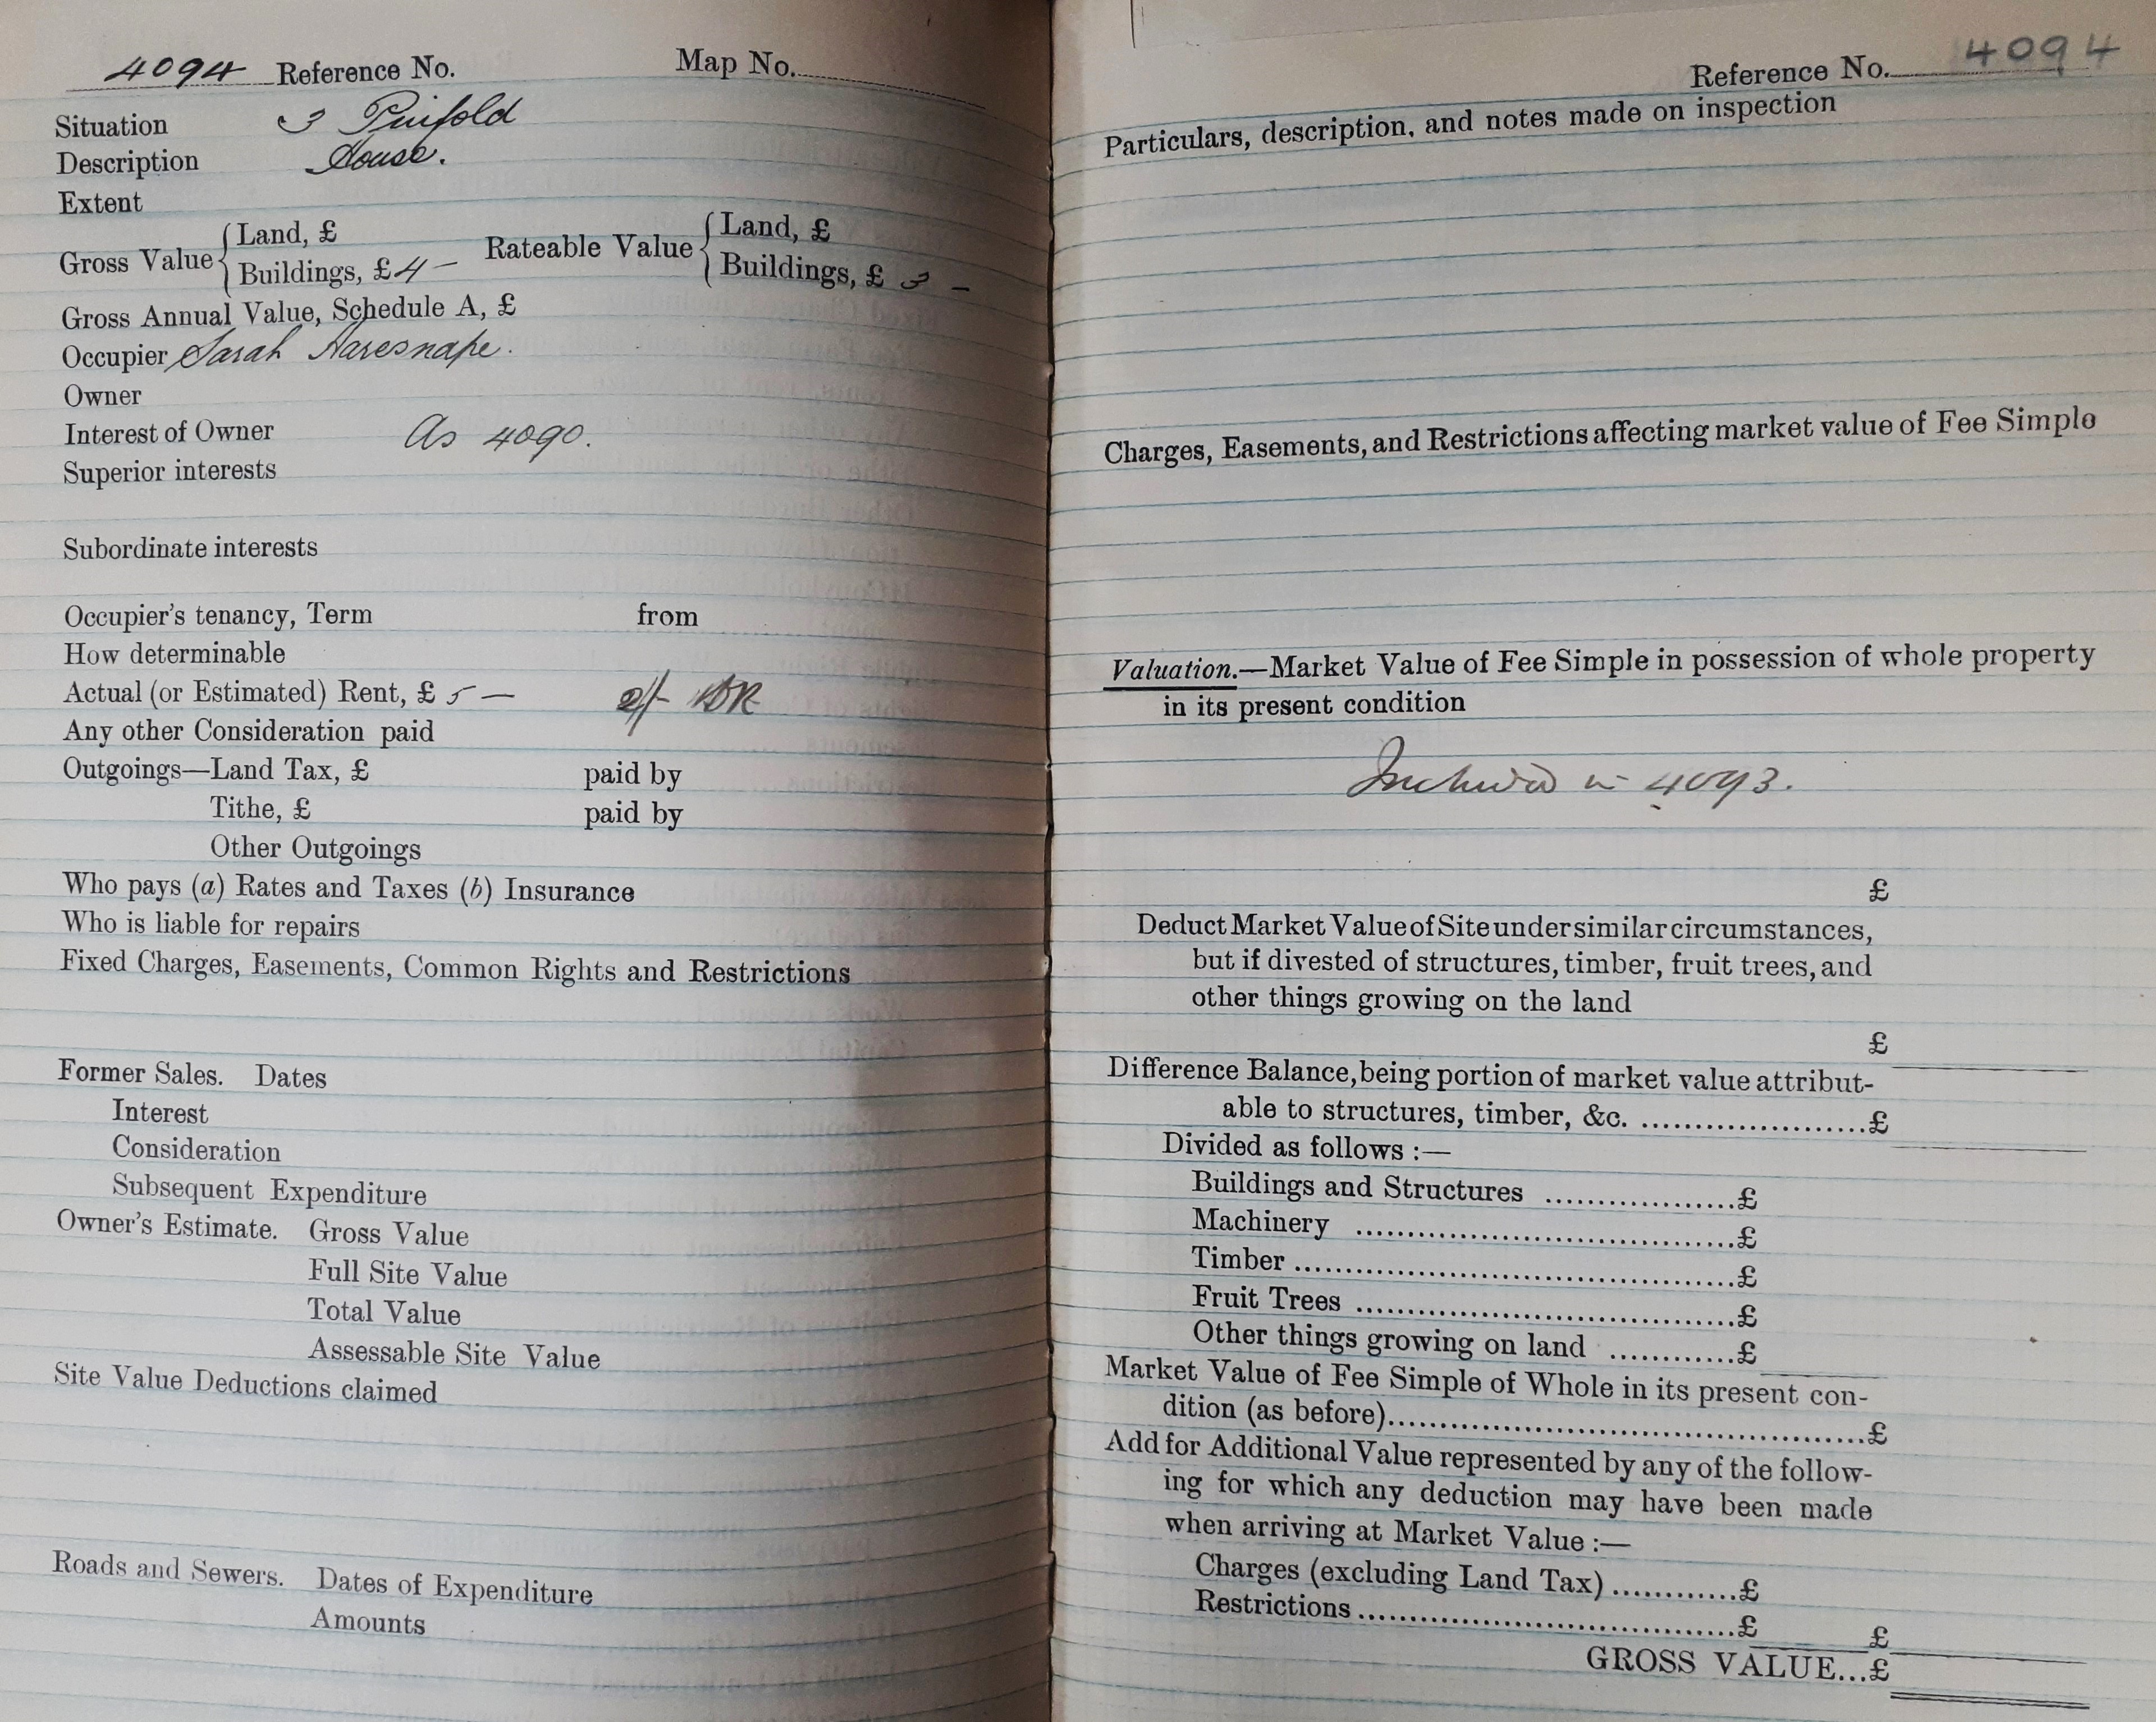 4094 Reference No. Map No.
Situation 3 Pinfold
Description House.
Extent
Gross Value { Land, £ Rateable Value { Land, £
Buildings, £ 4 — Buildings, £ 3 —
Gross Annual Value, Schedule A, £
Occupier Sarah Haresnape.
Owner
Interest of Owner As 4090.
Superior interests
Subordinate interests
Occupier's tenancy, Term from
How determinable
Actual (or Estimated) Rent, £ 5 — 2/-
Any other Consideration paid
Outgoings—Land Tax, £ paid by
Tithe, £ paid by
Other Outgoings
Who pays (a) Rates and Taxes (b) Insurance
Who is liable for repairs
Fixed Charges, Easements, Common Rights and Restrictions
Former Sales. Dates
Interest
Consideration
Subsequent Expenditure
Owner's Estimate. Gross Value
Full Site Value
Total Value
Assessable Site Value
Site Value Deductions claimed
Roads and Sewers. Dates of Expenditure
Amounts
Reference No. 4094
Particulars, description, and notes made on inspection
Charges, Easements, and Restrictions affecting market value of Fee Simple
Valuation.—Market Value of Fee Simple in possession of whole property
in its present condition
Included in 4093.
£
Deduct Market Value of Site under similar circumstances,
but if divested of structures, timber, fruit trees, and
other things growing on the land
£
Difference Balance, being portion of market value attribut-
able to structures, timber, &c. ......................£
Divided as follows :—
Buildings and Structures ...................£
Machinery ......................................£
Timber ............................................£
Fruit Trees ......................................£
Other things growing on land ............£
Market Value of Fee Simple of Whole in its present con-
dition (as before)................................................£
Add for Additional Value represented by any of the follow-
ing for which any deduction may have been made
when arriving at Market Value :—
Charges (excluding Land Tax) ............£
Restrictions ......................................£ £
GROSS VALUE...£